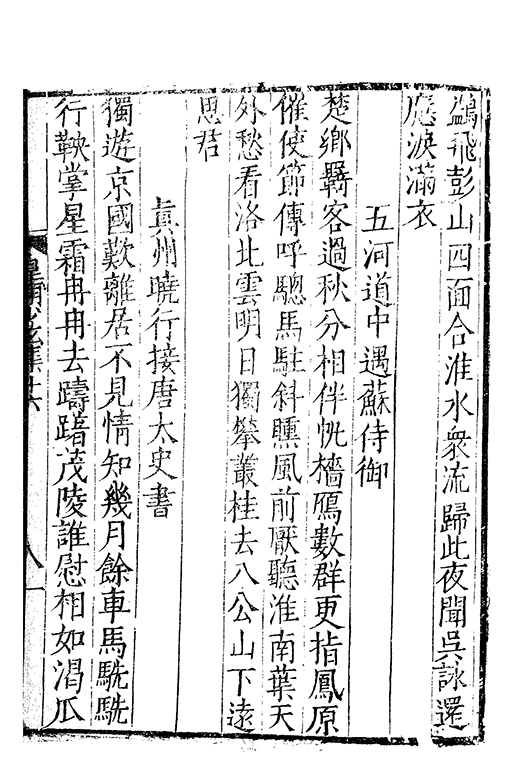 鷁飛彭山四面合淮水衆流歸此夜聞吳詠還
應淚滿衣
五河道中遇蘇侍御
楚鄉羇客過秋分相伴恍檣鴈數群更指鳳原
催使節傳呼驄馬駐斜曛風前厭聽淮南葉天
外愁看洛北雲明日獨攀叢桂去八公山下遠
思君
眞州曉行接唐太史書
獨遊京國歎離居不見情知幾月餘車馬駪駪
行鞅掌星霜冉冉去躊躇茂陵誰慰相如渴瓜
八